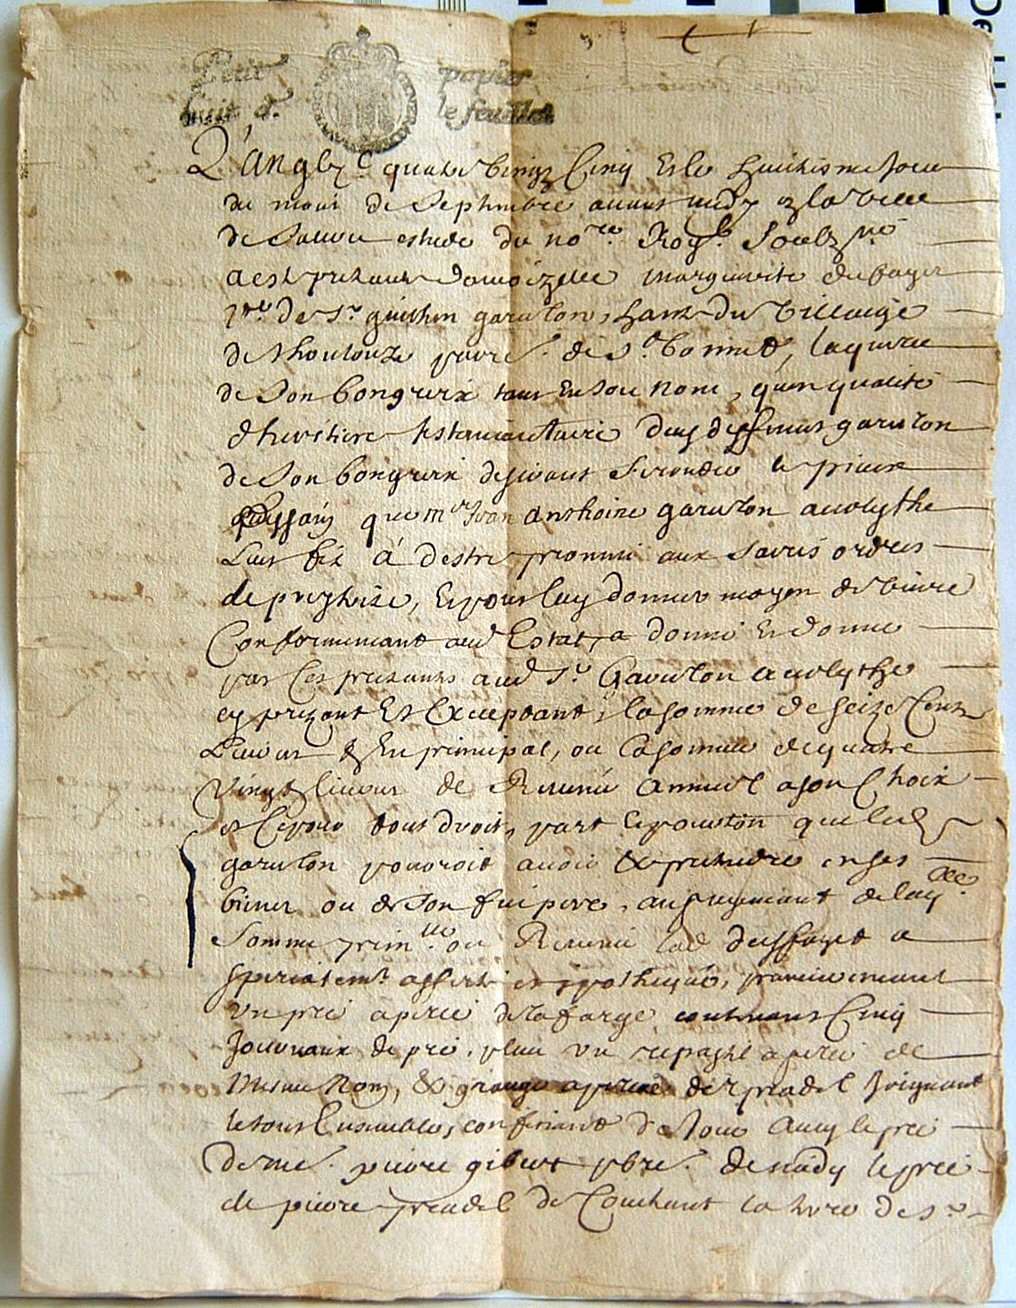 Petit papier
huit d. le feuillet
L'an gbɪc quatre vingz Cinq Et le huitiesme Jour
du mois de Septembre avant midy
de estude du nore Royal
a esté presante damoizelle Marguerite du fayet
de Sr guilhin garelon, hante du village
de thoulouze parre de St bonnet, laquelle
de Son bon gre tant En Son nom, qu'en qualité
d'heretiere testamantaire dud deffunct garelon
de Son bon gre desirant Seconder le pieux
que mre Jean anthoine garelon acolythe
Son filz a d'estre promeu aux Sacrés ordres
de prestrise, Et pour luy donner moyen de vivre
Conformemant aud Estat, a donné Et donne
par Ces presantes aud Sr Garelon acolythe
cy prezant Et Acceptant, la somme de seize Cents
Livres En principal, ou la somme de quatre
Vingt livres de Revenu annuel a son Choix
Et Ce pour tout droit, part Et portion que led
garelon pourroit avoir & pretendre en ses
biens ou de son feu pere, au payemant de laqlle
Somme prinlle ou Revenu lad du fayet a
specialemt affecté et ypothequé, premieremant
Un pré apellé de la farge contenant Cinq
Journaux de pré, plus un apellé de
Mesme Nom, & grange apellée de pradel Joignant
le tout Ensemble, confinant de Jour avec le pré
de me pierre gibert pbre de midy le pré
de pierre pradel de Couchant la terre de sr